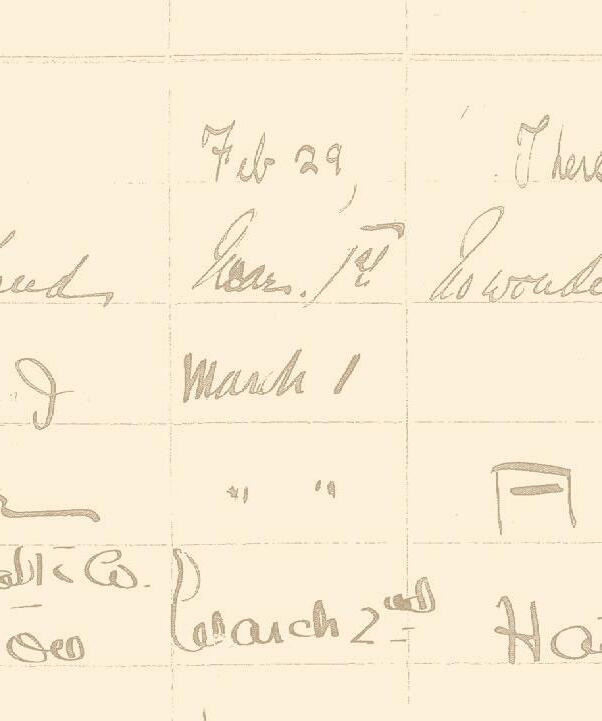 Feb 29, There
Mar. 1st No wonde
J March 1
" "
Co. March 2nd Ha